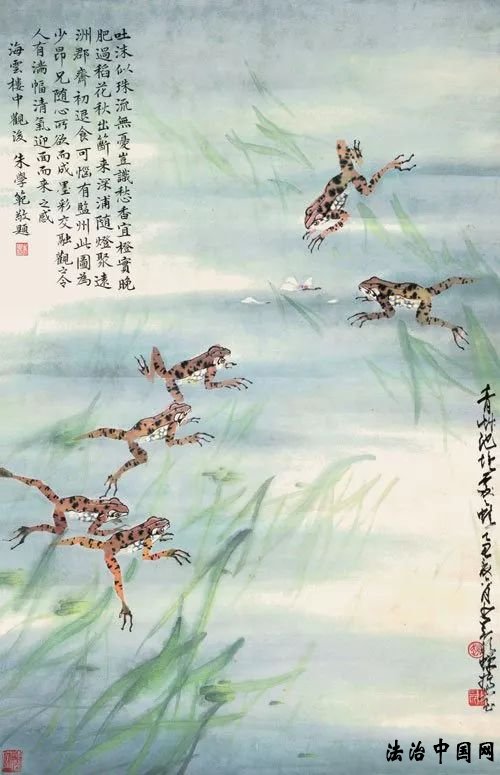 吐沫似珠流無憂豈識愁香宜橙實晚
肥過稻花秋出籪来深浦随燈聚遠
洲郡齋初退食可惱有監州此圖為
少昂兄随心所欲而成墨彩交融觀之令
人有满幅清氣迎面而来之感
海雲楼中觀後 朱學範敬題
青草池
法治中国网